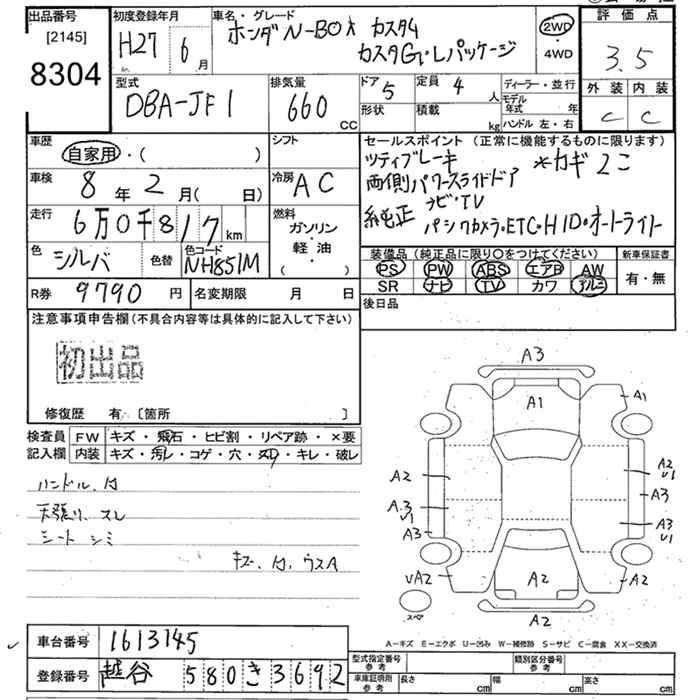 出品番号
[2145]
8304
初度登録年月
H27 6月
車名・グレード
ホンダ N-BOX カスタム
カスタムG・Lパッケージ
2WD
・4WD
評価点
3.5
外装 内装
C C
型式
DBA-JF1
排気量
660 cc
ドア
5
定員 4 人
形状
積載 kg
ディーラー・並行
モデル年式 年
ハンドル 左・右
車歴
自家用・( )
車検
8年2月( 日)
走行
6万0千817km
色
シルバ
色替
色コード
NH851M
シフト
冷房
AC
燃料
ガソリン
軽・油
( ・ )
セールスポイント(正常に機能するものに限ります)
ツティブレーキ *カギ2こ
両側パワースライドドア
ナビ・TV
純正 バックカメラ・ETC・HID・オートライト
装備品(純正品に限り○をつけてください) 新車保証書
PS PW ABS エアB AW
SR ナビ TV カワ アルミ
有・無
R券 9790円
名変期限 月 日
後日品
注意事項申告欄(不具合内容等は具体的に記入して下さい)
初出品
修復歴 有[箇所 ]
検査員記入欄
FW キズ・飛石・ヒビ割・リペア跡・×要
内装 キズ・汚レ・コゲ・穴・スレ・キレ・破レ
ハンドル、
天張り、スレ
シート シミ
キズ、 ウスA
A3
A1
A1
A2
A2
U1
A3
A3
U1
A3
A3
U1
UA2
A2
A2
A2
スペア
A-キズ E-エクボ U-凹み W-補修跡 S-サビ C-腐食 XX-交換済
車台番号 1613145
登録番号 越谷 580 き 3692
型式指定番号 参考
類別区分番号 参考
車庫証明用 参考
長さ cm
幅 cm
高さ cm